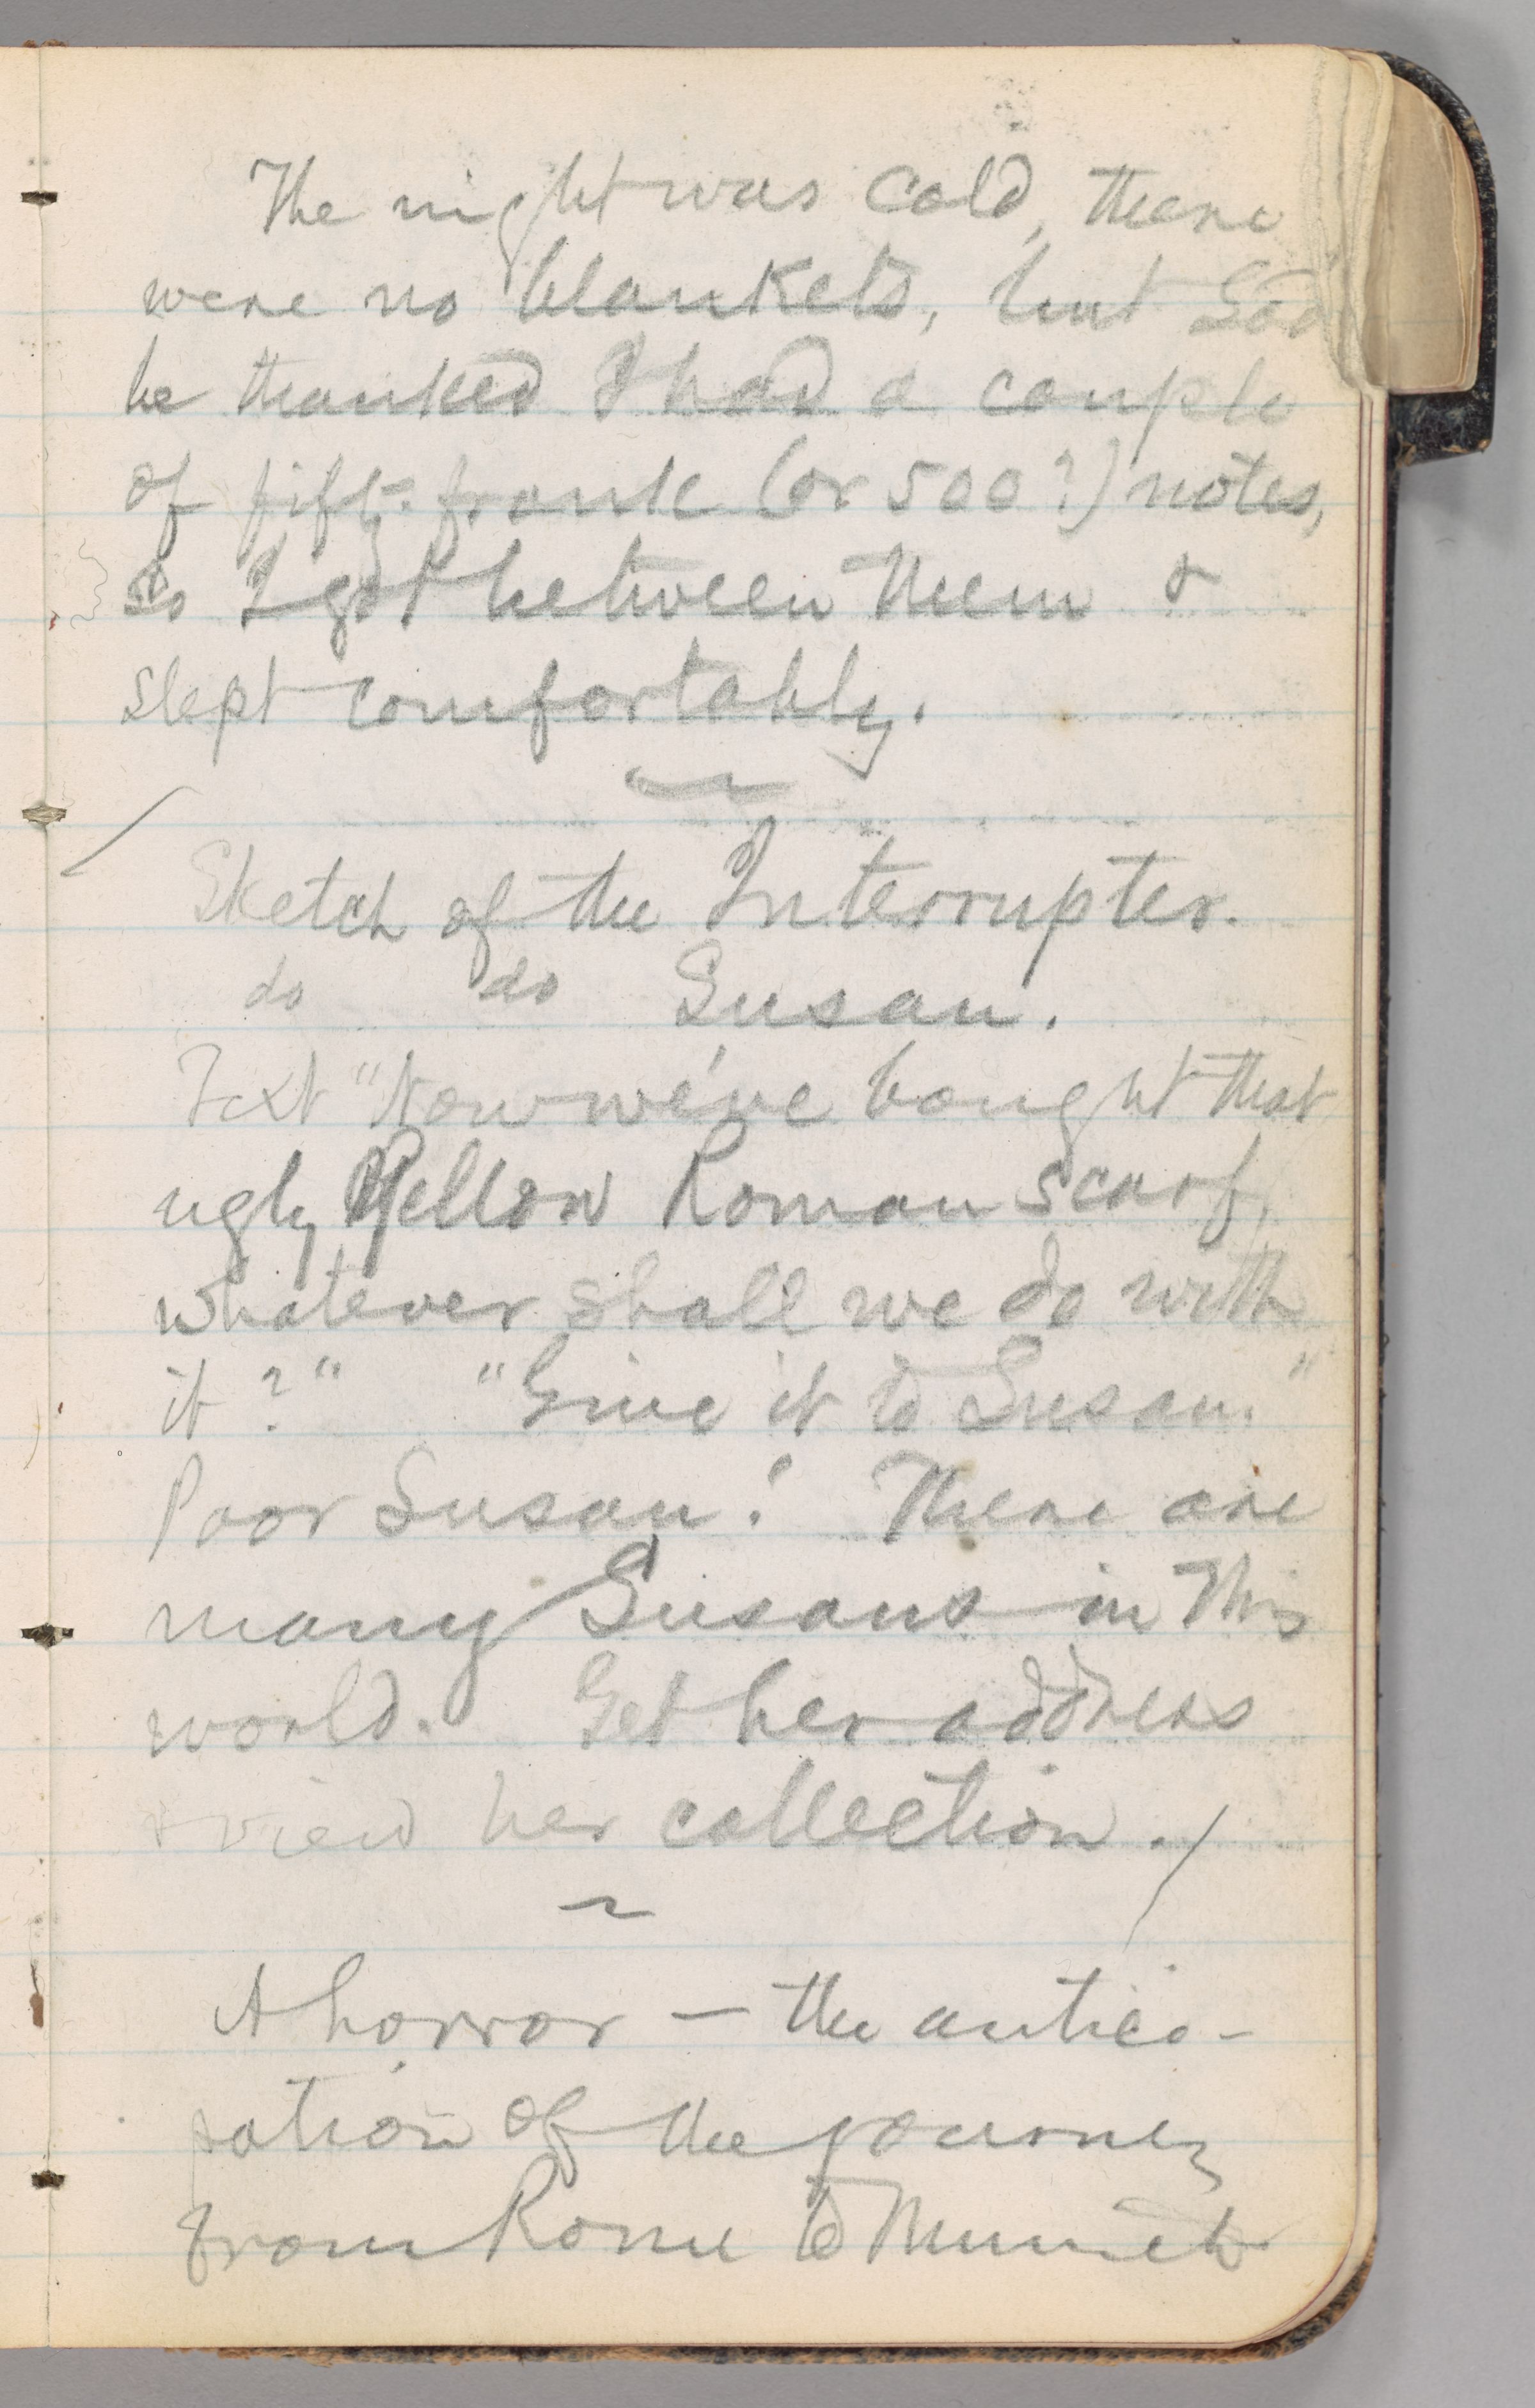 The night was cold, there
were no blankets, but God
be thanked I had a couple
of fifty-frank (or 500?) notes,
so I got between them &
slept comfortably.
Sketch of the Interrupter.
do do Susan.
Text "Now we've bought that
ugly Yellow Roman scarf,
whatever shall we do with
it?" "Give it to Susan."
Poor Susan! There are
many Susans in this
world. Get her address
& view her collection.
A horror — the antici-
pation of the journey
from Rome to Munich